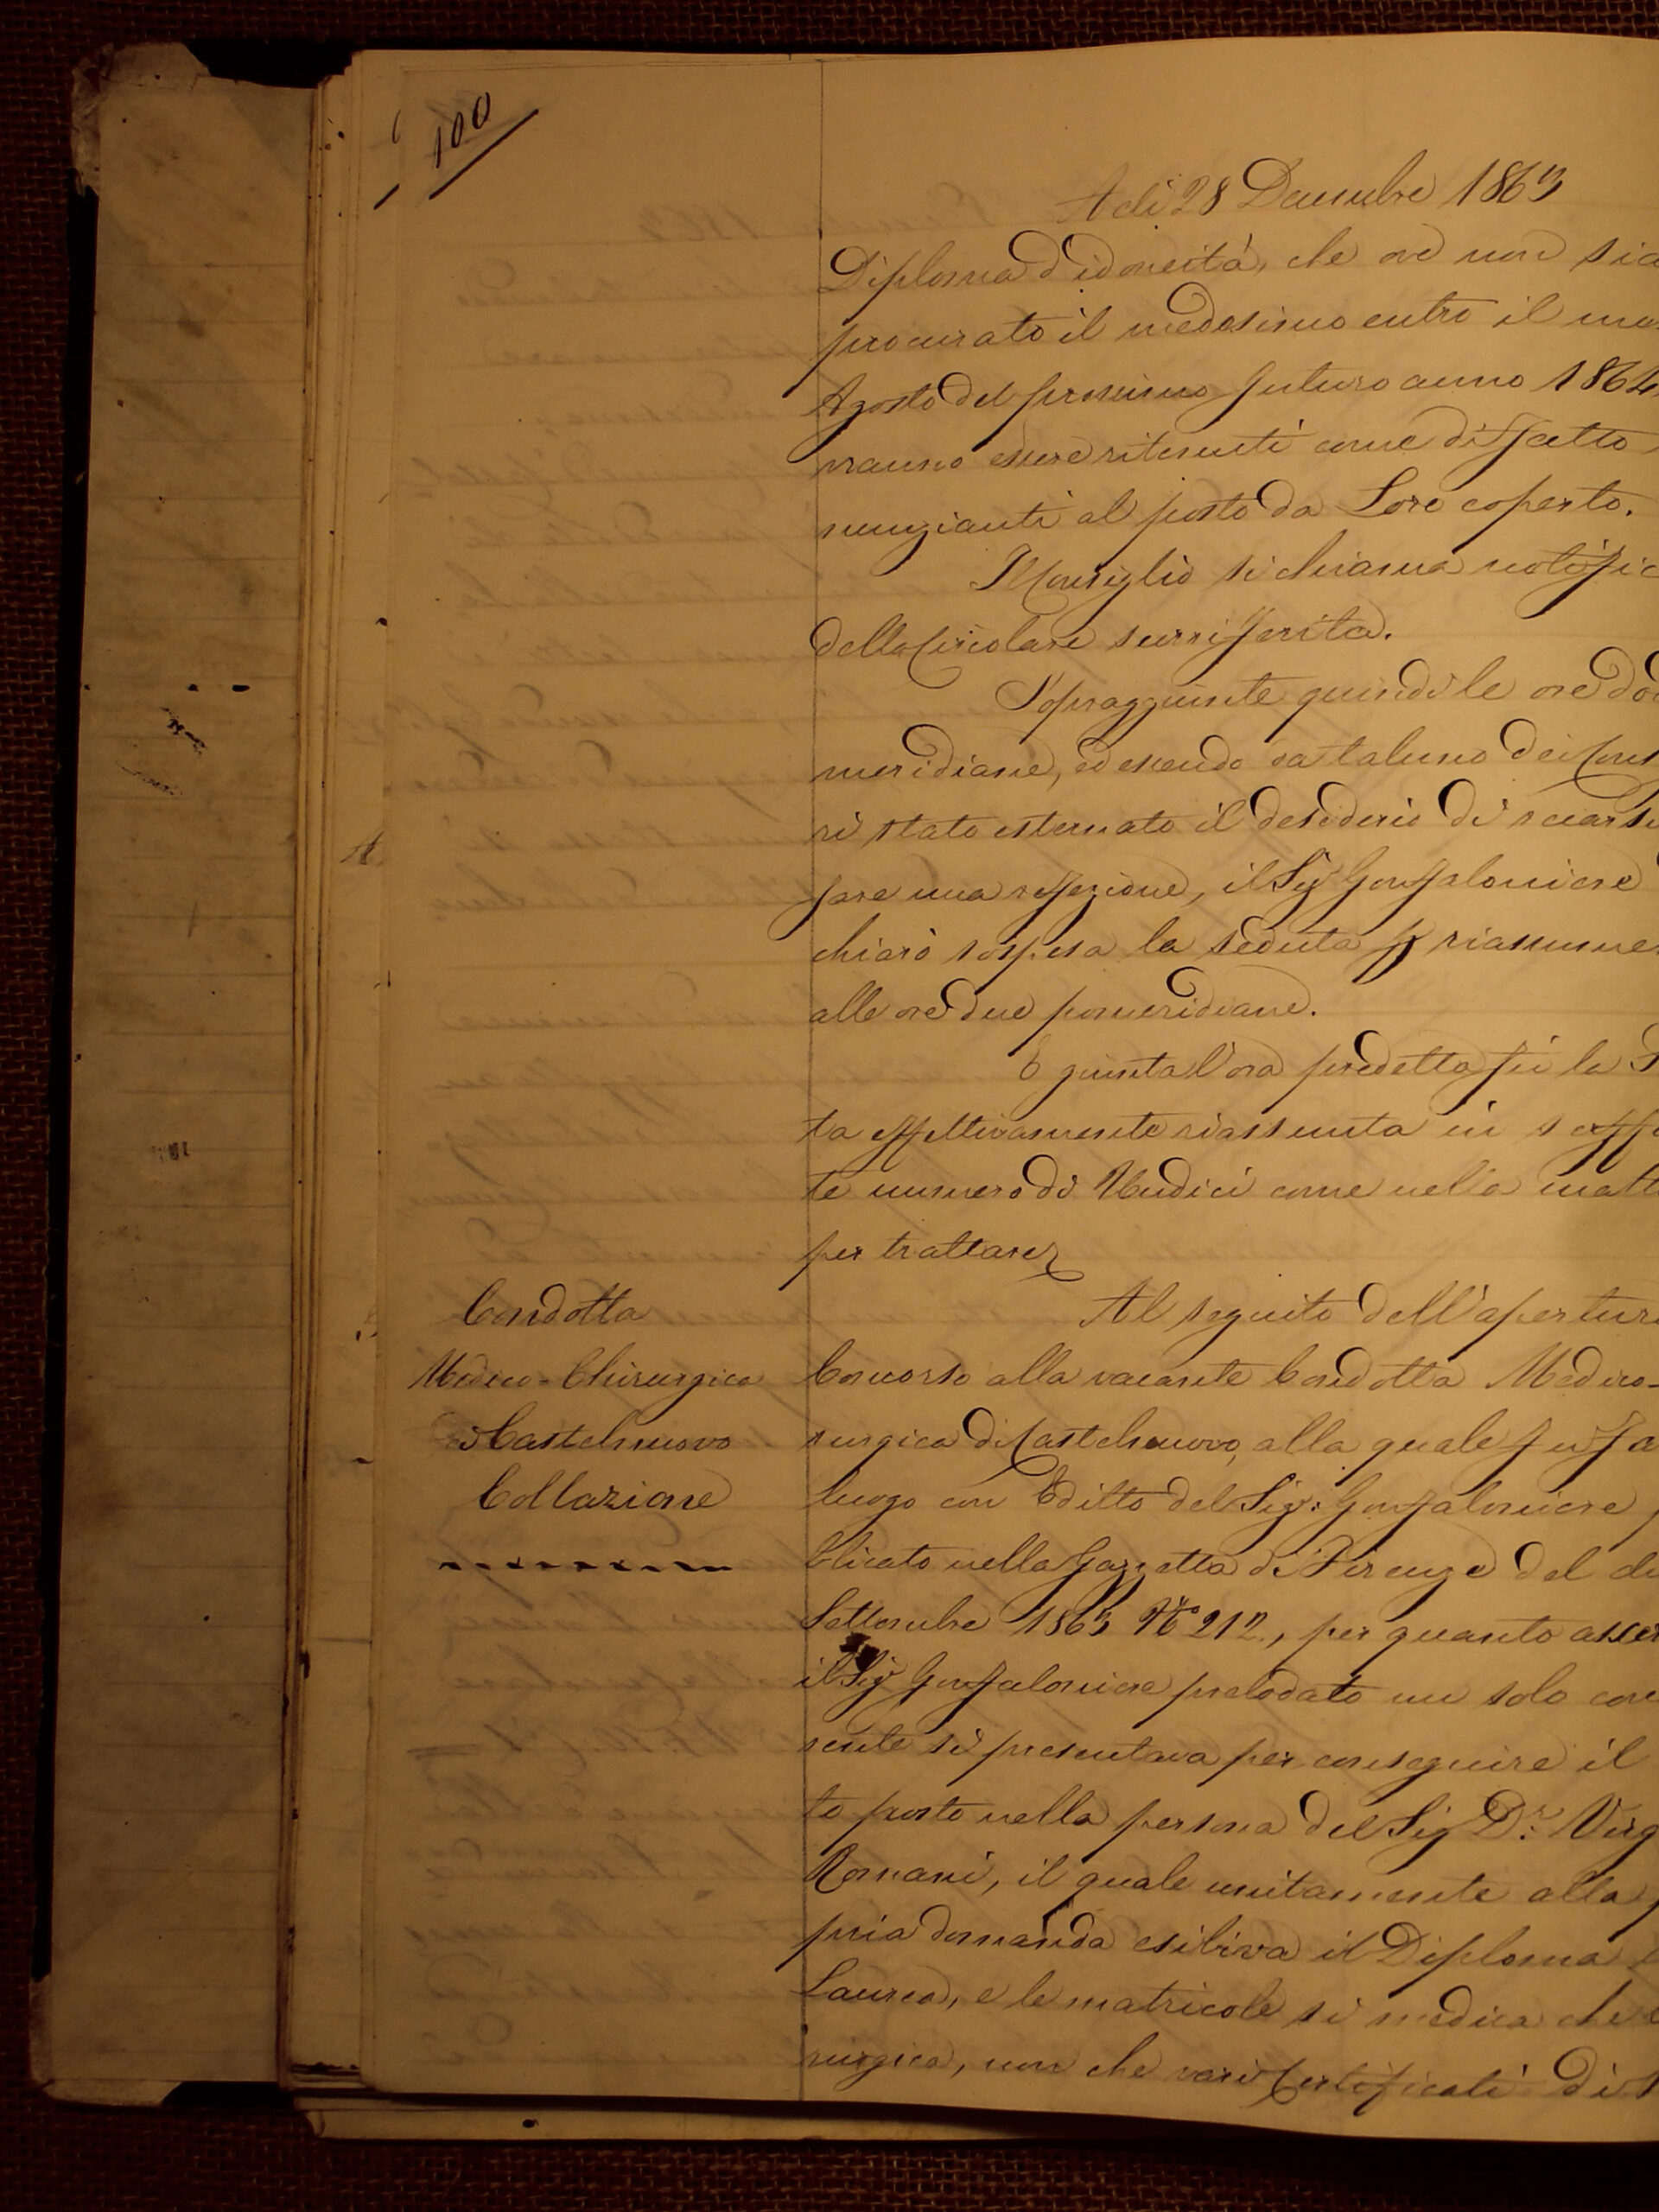 100
A dì 28 Decembre 1863
Diploma d'idoneità, che ove non sia
procurato il medesimo entro il me
Agosto del prossimo futuro anno 1864
vranno essere ritenuti come di fatto
nunzianti al posto da Loro coperto.
Il Consiglio si chiama notific
della Circolare surriferita.
Sopraggiunte quindi le ore do
meridiane, ed essendo da taluno dei Cons
ri stato esternato il desiderio di
fare una refezione, il Sigr Gonfaloniere
chiarò sospesa la seduta p riassumer
alle ore due pomeridiane.
E giunta l'ora predetta fù la S
ta effettivamente riassunta in
te numero di Undici come nella matt
per trattare
Condotta
Medico-Chirurgica
di Castelnuovo
Collazione
Al seguito dell'apertur
Concorso alla vacante Condotta Medico-
rurgica di Castelnuovo, alla quale fu fa
luogo con Editto del Sigr: Gonfaloniere
blicato nella Gazzetta di Firenze del dì
Settembre 1863 No 212, per quanto asser
il Sigr Gonfaloniere prelodato un solo con
rente si presentava per conseguire il
to posto nella persona del Sig Dr: Virg
Romani, il quale unitamente alla p
pria domanda esibiva il Diploma
Laurea, e le matricole sì medica che
rurgica, non che varj Certificati di